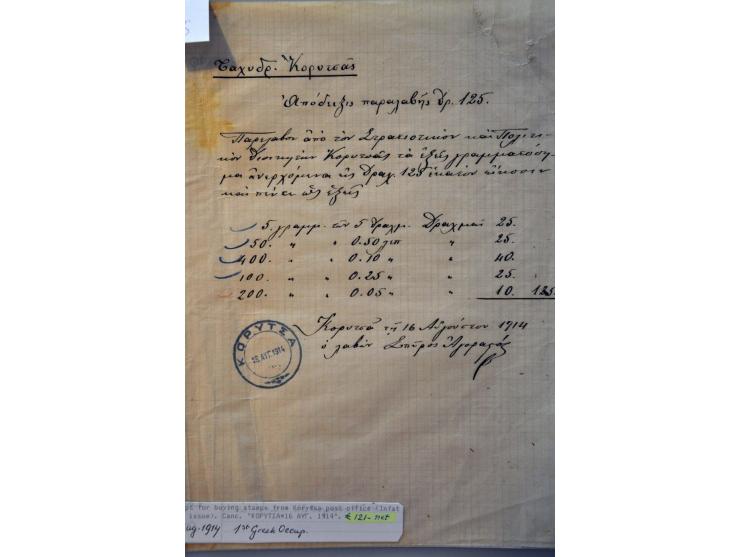 Ταχυδρ. Κορυτσᾶς
Ἀπόδειξις παραλαβῆς Δρ. 125.
Παρέλαβον ἀπὸ τὸν Στρατιωτικὸν καὶ Πολιτι-
κὸν Διοικητὴν Κορυτσᾶς τὰ ἑξῆς γραμματόση-
μα ἀνερχόμενα εἰς Δραχ. 125 ἑκατὸν εἴκοσιν
καὶ πέντε ὡς ἑξῆς
5. γραμμ. τῶν 5 Δραχμ. Δραχμαὶ 25.
50. " " 0.50 λεπ " 25.
400. " " 0.10 " " 40.
100 " " 0.25 " " 25
200. " " 0.05 " " 10. 125
Κορυτσᾶ τῇ 16 Αὐγούστου 1914
ὁ λαβὼν Σπῦρος Ἀγοραστός
ΚΟΡΥΤΣΑ
ΑΥΓ. 1914
pt for buying stamps from Korytsa post office (Infat
issue). Canc. "ΚΟΡΥΤΣΑ*16 ΑΥΓ. 1914".
€ 121- net
ug-1914 1st Greek Occup.